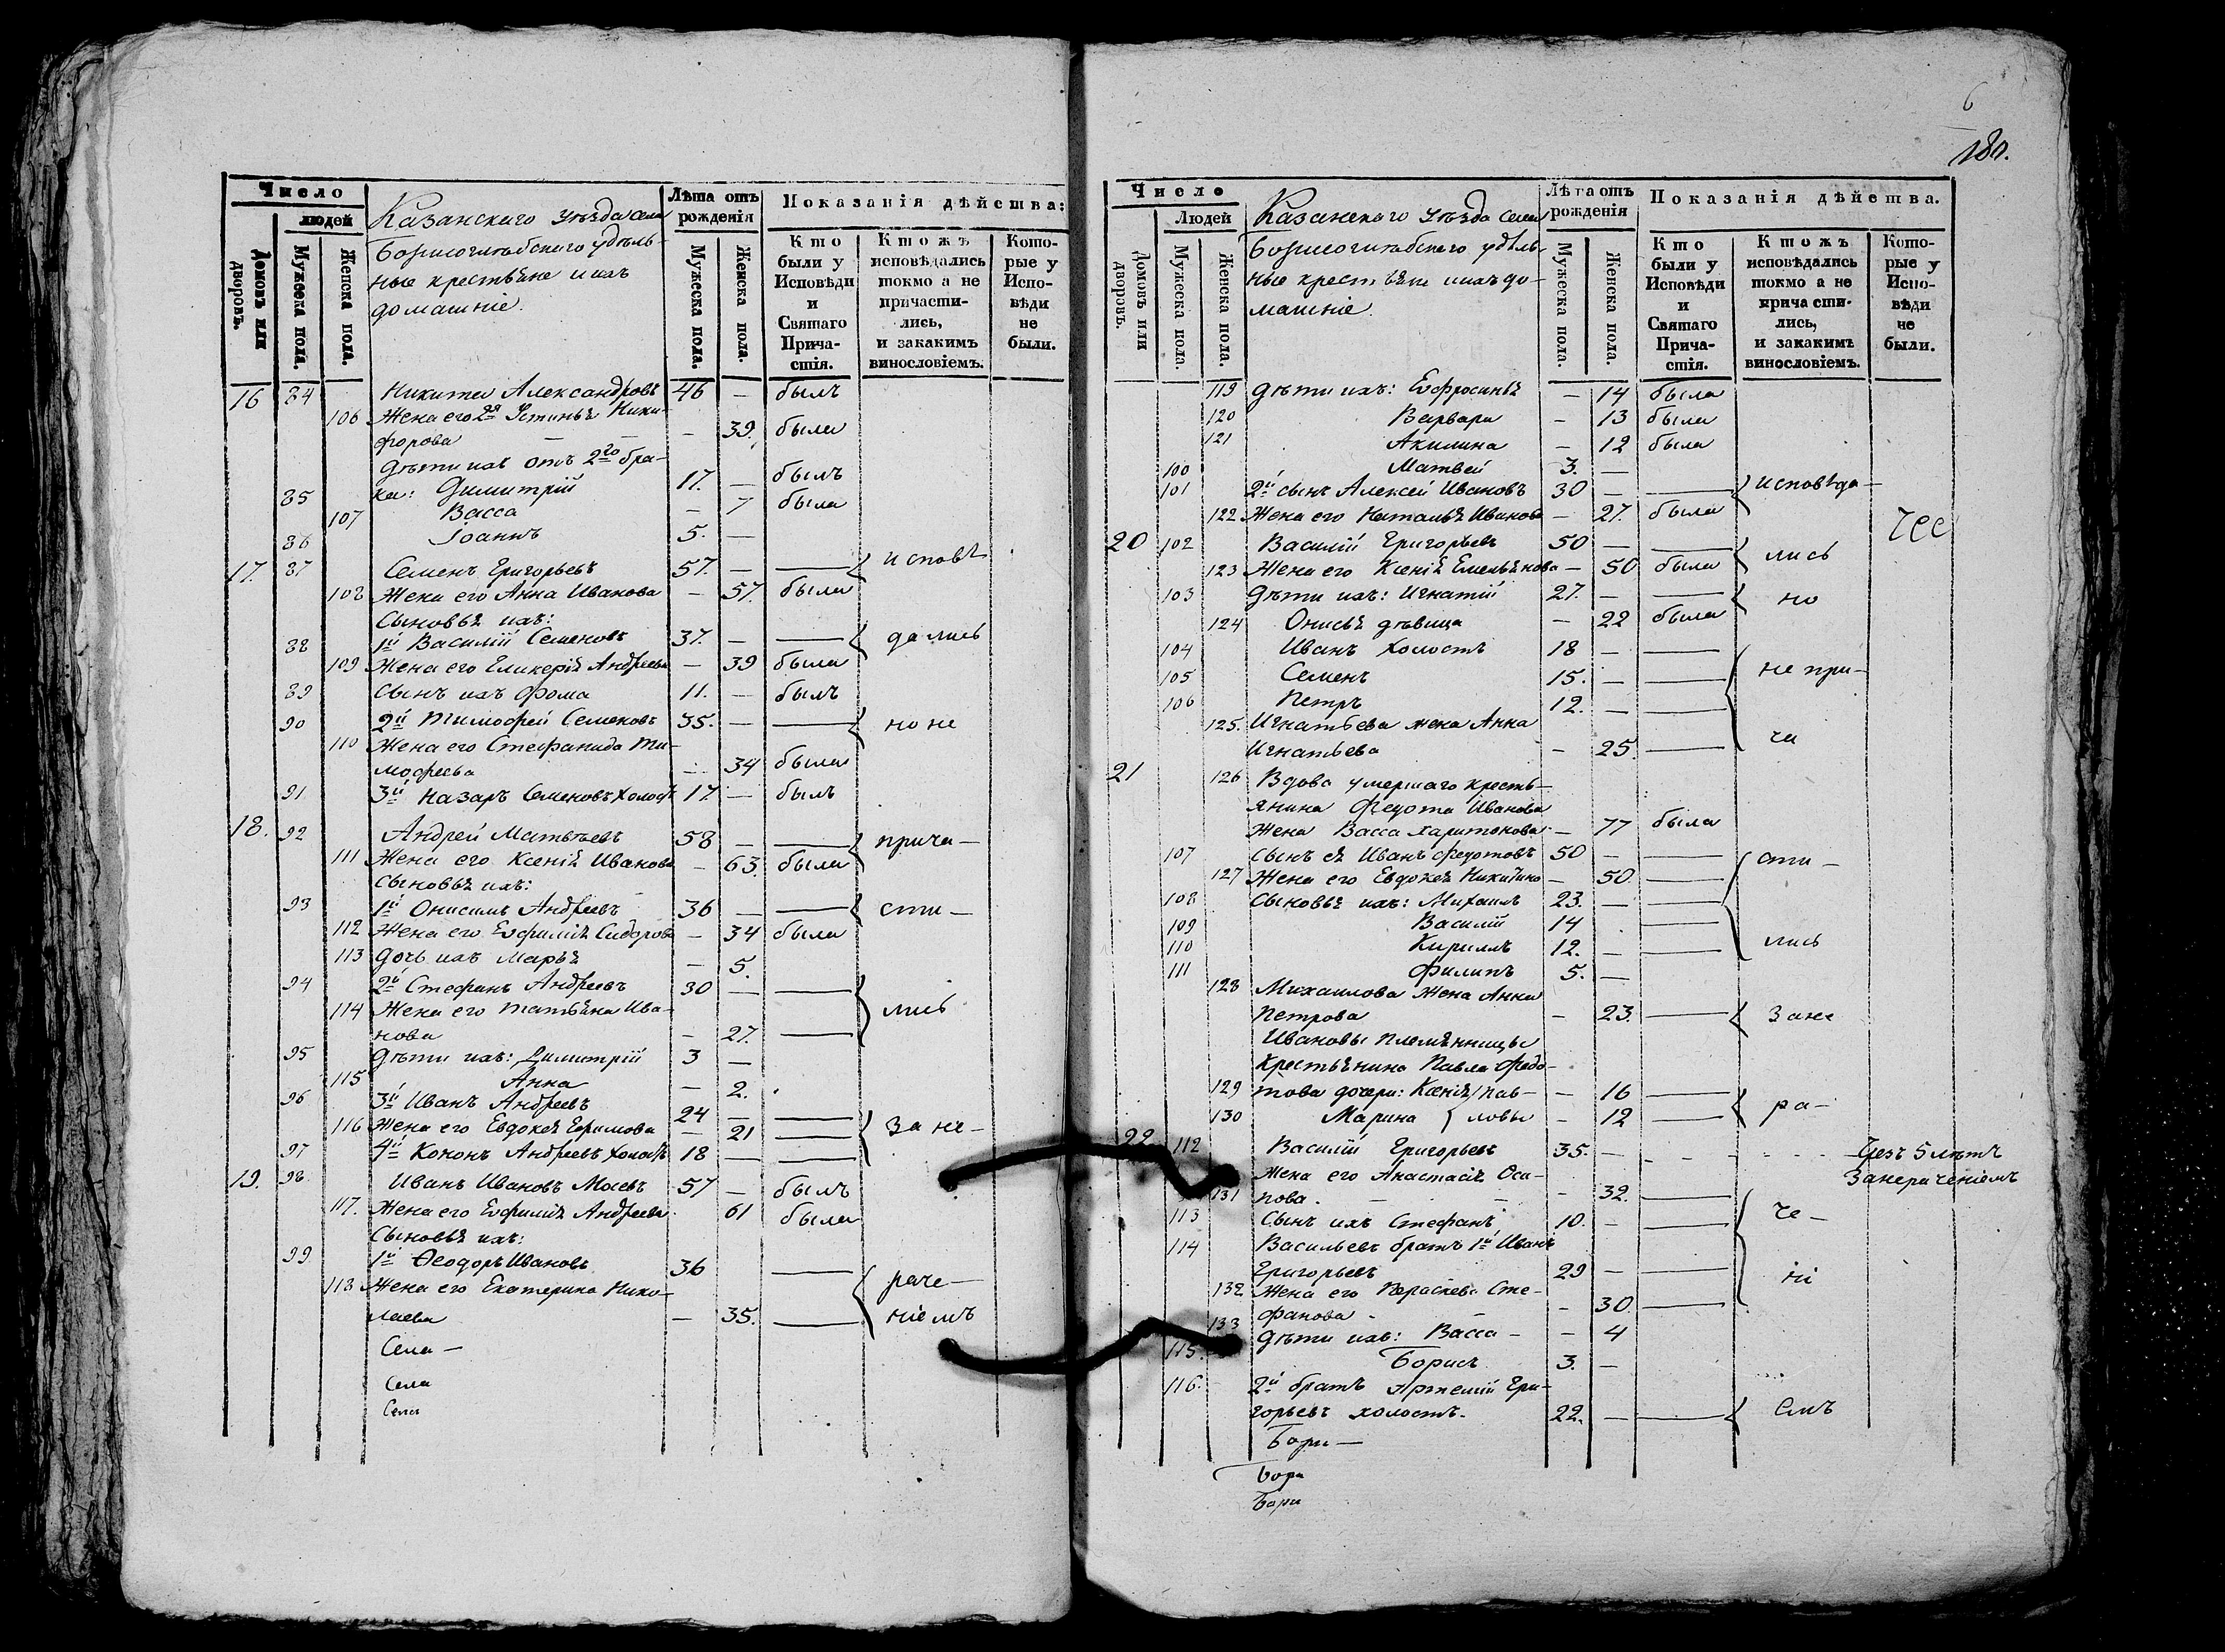 Число
Людей
Домовъ или дворовъ.
Мужеска пола.
Женска пола.
Казанскаго уѣзда села
Борисоглѣбскаго удѣль-
ные крестьяне и ихъ
домашніе.
Лѣта отъ рожденія
Мужеска пола.
Женска пола.
Показанія дѣйства:
Кто были у Исповѣди и Святаго Прича-стія.
Ктожъ исповѣдались токмо а не причасти-лись, и закакимъ винословіемъ.
Кото-рые у Испо-вѣди не были.
16 84 Никита Александровъ 46 — былъ
106 Жена его 2я Устинья Ники-
форова — 39. была
дѣти ихъ отъ 2го бра-
85 ка: Димитрій 17. — былъ
107 Васса — 7 была
86 Іоаннъ 5. —
17. 87 Семенъ Григорьевъ 57. — — исповѣ
108 Жена его Анна Иванова — 57. была
Сыновья ихъ:
88 1й Василій Семеновъ 37. — — дались
109 Жена его Гликерія Андреева — 39 была
89 Сынъ ихъ Фома 11. — былъ
90 2й Тимофей Семеновъ 35. — — но не
110 Жена его Стефанида Ти-
мофеева — 34 была
91 3й Назаръ Семеновъ холостъ 17. — былъ
18. 92 Андрей Матвѣевъ 58 — — прича-
111 Жена его Ксенія Иванова — 63. была
Сыновья ихъ:
93 1й Онисимъ Андреевъ 36 — — сти-
112 Жена его Евфимія Сидорова — 34 была
113 Дочь ихъ Марья — 5.
94 2й Стефанъ Андреевъ 30 — —
114 Жена его Татьяна Ива- лись
нова — 27. —
95 Дѣти ихъ: Димитрій 3 —
115 Анна — 2.
96 3й Иванъ Андреевъ 24 — —
116 Жена его Евдокея Ефимова — 21 — за не-
97 4й Кононъ Андреевъ холостъ 18 — —
19. 98. Иванъ Ивановъ Мосевъ 57 — былъ
117. Жена его Евфимія Андреева 61 была
Сыновья ихъ:
99. 1й Ѳеодоръ Ивановъ 36 — раче-
118 Жена его Екатерина Нико-
лаева — 35. — ніемъ
Села —
Села
Села
6
180.
Число
Людей
Домовъ или дворовъ.
Мужеска пола.
Женска пола.
Казанскаго уѣзда села
Борисоглѣбскаго удѣль-
ные крестьяне и ихъ до-
машніе.
Лѣта отъ рожденія
Мужеска пола.
Женска пола.
Показанія дѣйства.
Кто были у Исповѣди и Святаго Прича-стія.
Ктожъ исповѣдались токмо а не прича сти-лись, и закакимъ винословіемъ.
Кото-рые у Испо-вѣди не были.
119 дѣти ихъ: Евфросинья — 14 была
120 Варвара — 13 была
121 Акилина — 12 была
100 Матвей 3. —
101 2й сынъ Алексей Ивановъ 30 — — исповѣда-
122 Жена его Наталья Иванова — 27. была
20 102 Василій Григорьевъ 50 — — лись
123 Жена его Ксенія Емельянова — 50 была
103 дѣти ихъ: Игнатій 27. — — но
124 Онисья дѣвица — 22 была
104 Иванъ холостъ 18 — —
105 Семенъ 15. — — не при-
106 Петръ 12. — —
125. Игнатьева жена Анна
Игнатьева — 25. — ча
21 126 Вдова умершаго кресть-
янина Федота Иванова
жена Васса Харитонова — 77 была
107 Сынъ ея Иванъ Федотовъ 50 — — сти-
127 Жена его Евдокея Никитина — 50. —
108 Сыновья ихъ: Михаилъ 23. — —
109 Василій 14 —
110 Кириллъ 12. — — лись
111 Филипъ 5. —
128 Михаилова жена Анна
Петрова — 23. — за не
Ивановы племянницы
крестьянина Павла Федо-
129 това дочери: Ксенія / Пав- — 16 —
130 Марина / ловы — 12 — ра-
22 112 Василій Григорьевъ 35. — Чрезъ 5 лѣтъ
за нераченіемъ
Жена его Анастасія Оси-
131 пова. — 32. —
113 Сынъ ихъ Стефанъ 10. — — че-
114 Васильевъ братъ 1й Иванъ
Григорьевъ 29 — — ні
132 Жена его Параскева Сте-
фанова — 30. —
133 дѣти ихъ: Васса — 4
115. Борисъ 3. —
116. 2й братъ Артемій Гри-
горьевъ холостъ. 22. — — емъ
Бори —
Бори
Бори